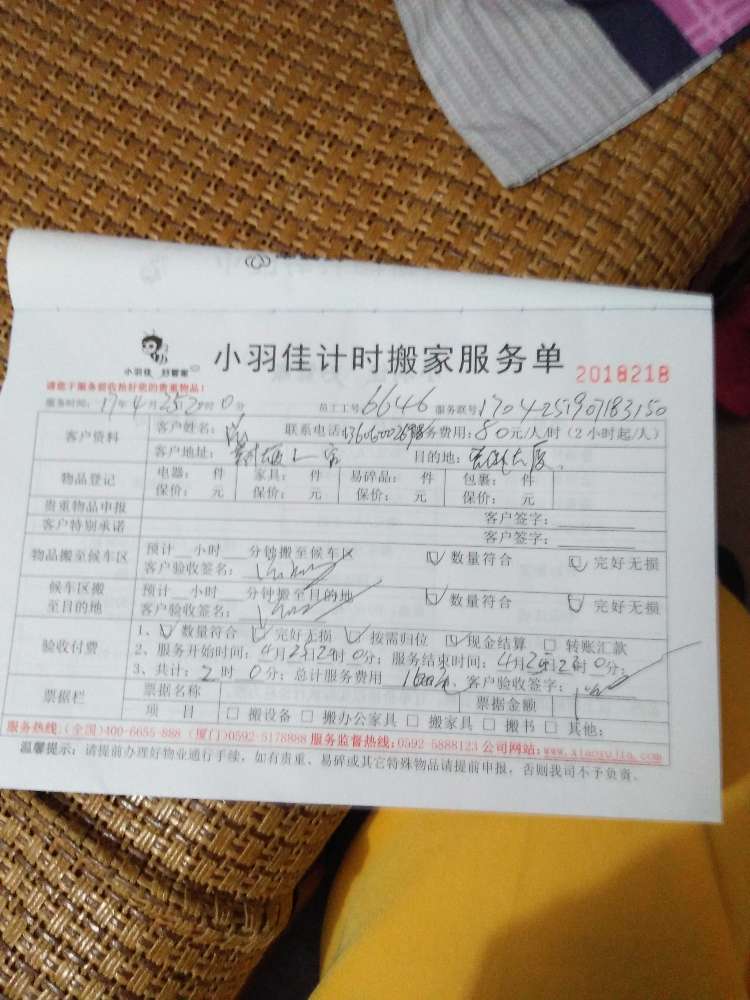 小羽佳 好管家
小羽佳计时搬家服务单
2018218
请您于服务前收拾好您的贵重物品！
服务时间：17年4月25 2时0分 员工工号 6646 服务联号 1704251907183150
客户资料
客户姓名： 联系电话 服务费用：80元/人/时（2小时起/人）
客户地址： 目的地：
物品登记
电器： 件 家具： 件 易碎品： 件 包裹： 件
保价： 元 保价： 元 保价： 元 保价： 元
贵重物品申报 客户签字：
客户特别承诺 客户签字：
物品搬至候车区
预计 小时 分钟搬至候车区 数量符合 完好无损
客户验收签名：
候车区搬至目的地
预计 小时 分钟搬至目的地 数量符合 完好无损
客户验收签名：
验收付费
1、 数量符合 完好无损 按需归位 现金结算 □ 转账汇款
2、服务开始时间：4月25 2时0分；服务结束时间：4月25 2时0分；
3、共计：2时0分；总计服务费用 客户验收签字：
票据栏
票据名称 票据金额
项 目 □ 搬设备 □ 搬办公家具 □ 搬家具 □ 搬书 □ 其他：
服务热线：(全国)400-6655-888 (厦门)0592-5178888 服务监督热线：0592-5888123 公司网站：www.xiaoyujia.com
温馨提示：请提前办理好物业通行手续，如有贵重、易碎或其它特殊物品请提前申报，否则我司不予负责。